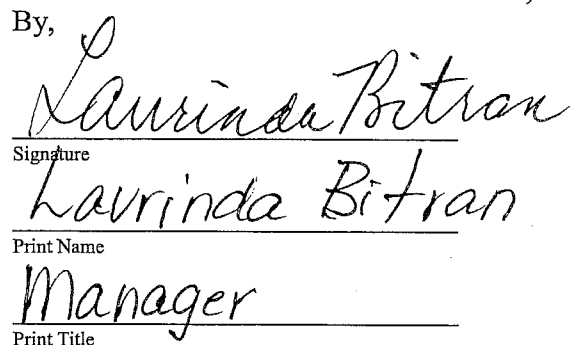 By,
Laurinda Bitran
Signature
Laurinda Bitran
Print Name
Manager
Print Title